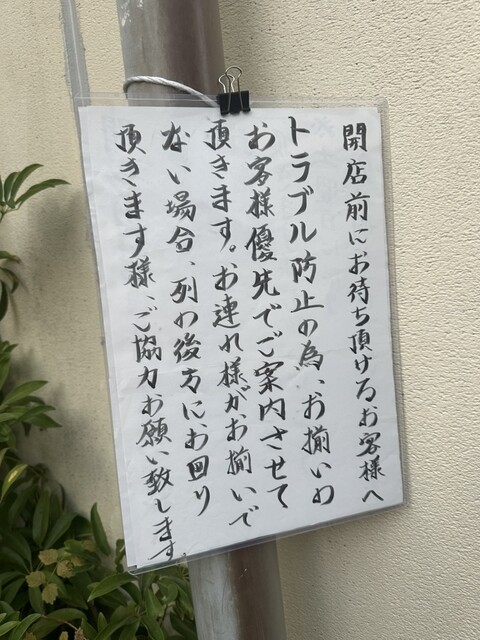 開店前にお待ち頂けるお客様へ
トラブル防止の為、お揃いの
お客様優先でご案内させて
頂きます。お連れ様がお揃いで
ない場合、列の後方にお回り
頂きます様、ご協力お願い致します。